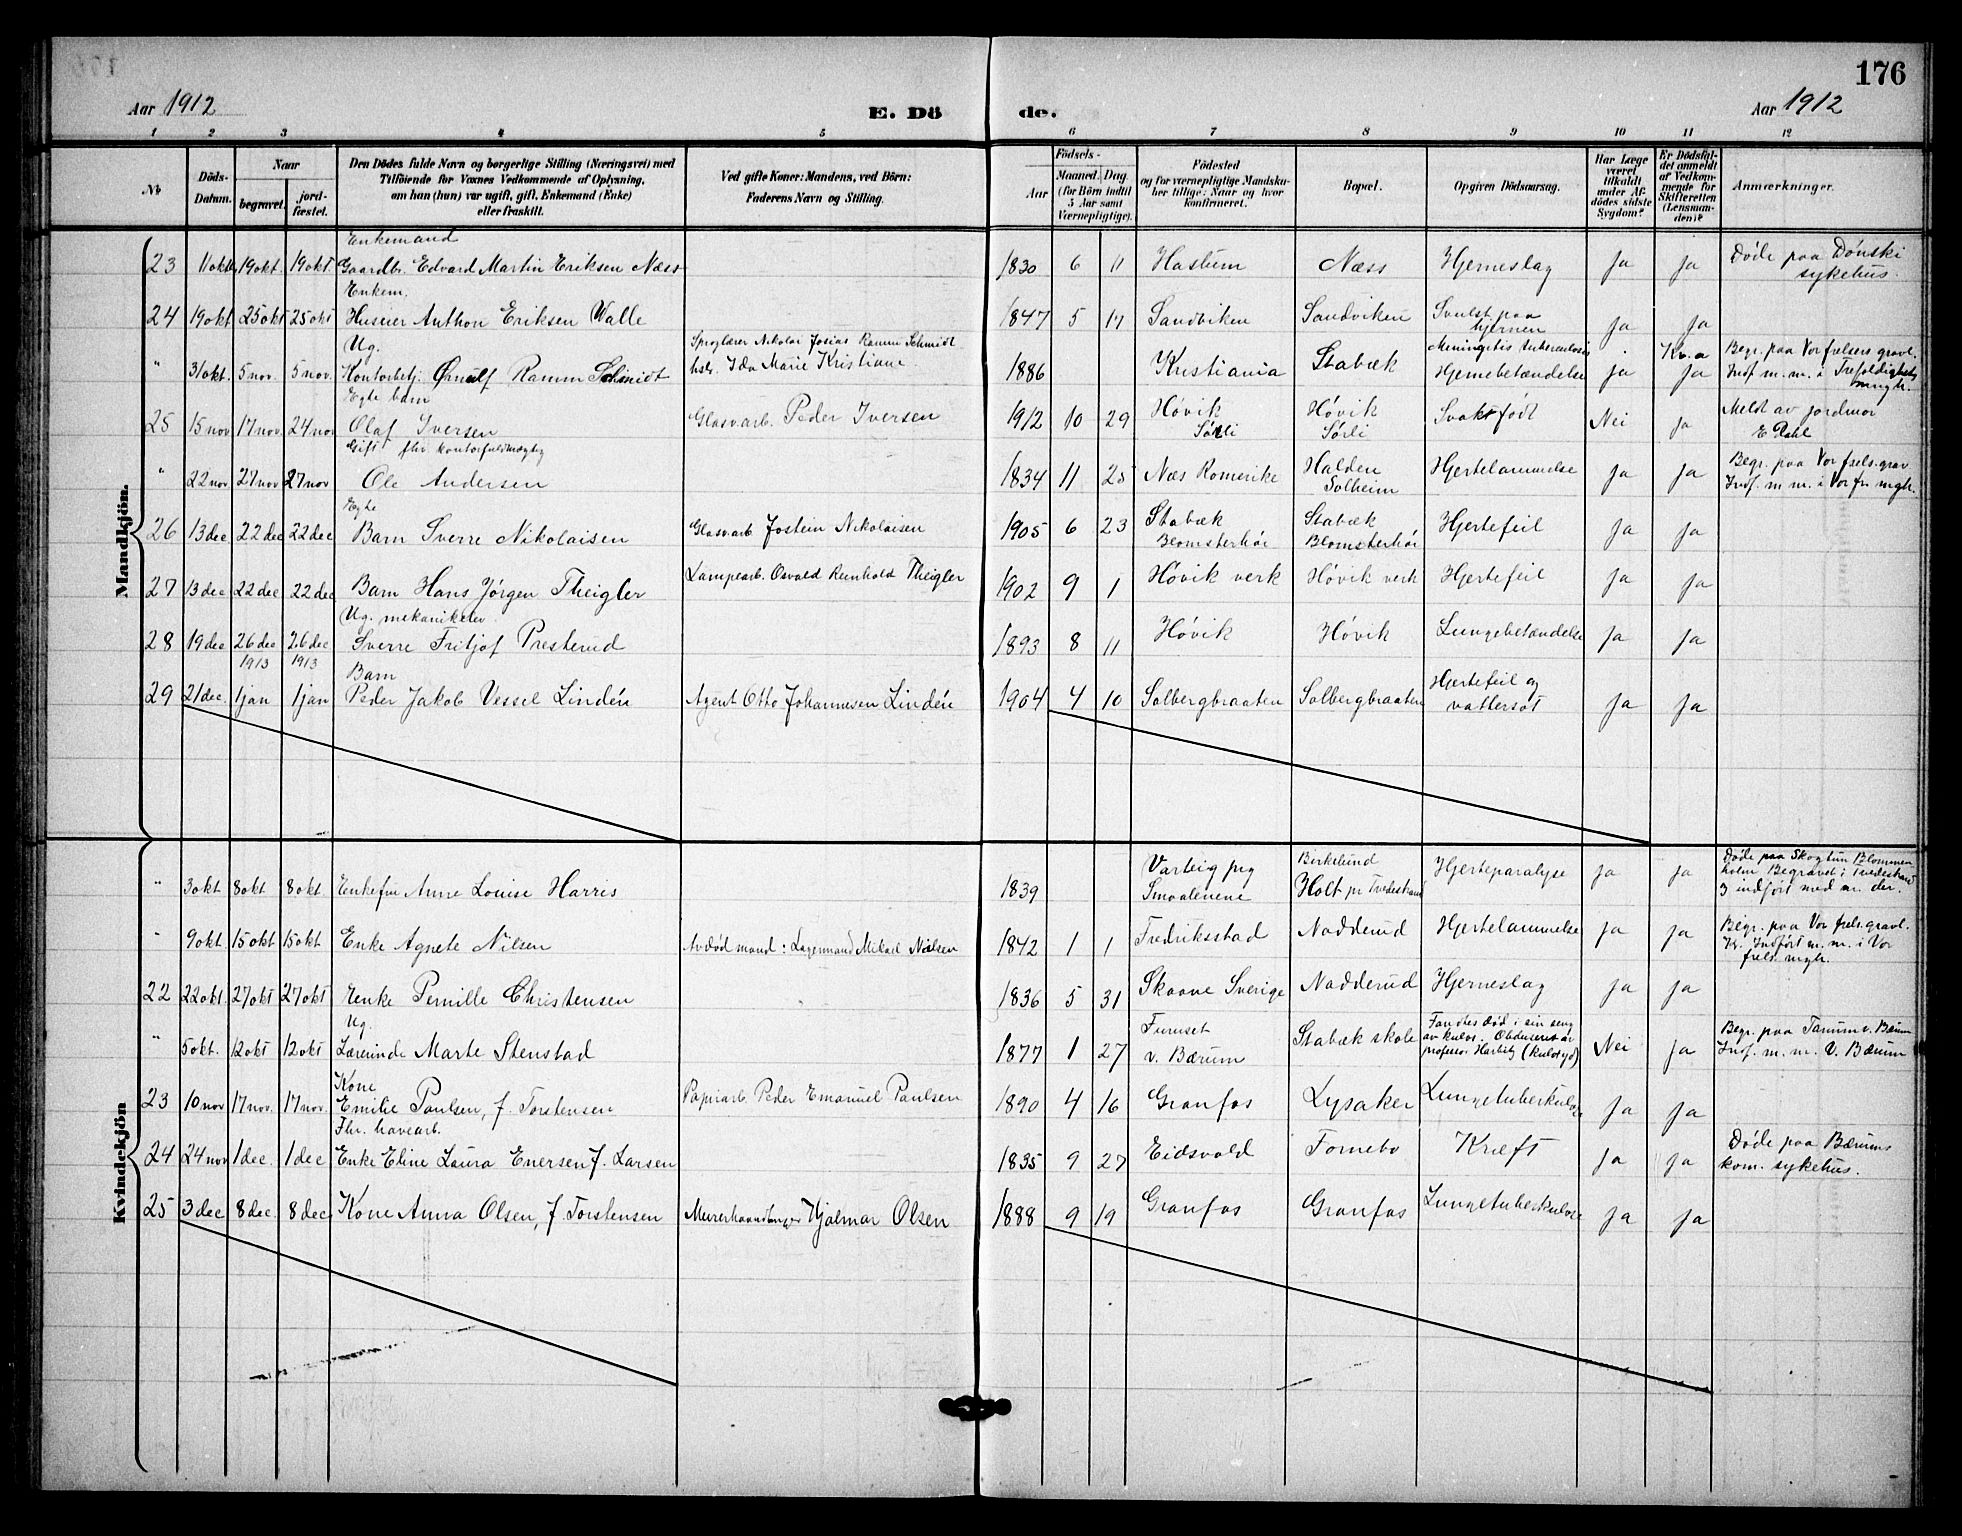 176
Aar 1912
E. Dö
de.
Aar 1912
1 2 3 4 5 6 7 8 9 10 11 12
No
Döds-Datum.
Naar
begravet.
jord-fæstet.
Den Dödes fulde Navn og borgerlige Stilling (Næringsvei) med
Tilföiende for Voxnes Vedkommende af Oplysning,
om han (hun) var ugift, gift, Enkemand (Enke)
eller fraskilt.
Ved gifte Koner: Mandens, ved Börn:
Faderens Navn og Stilling.
Födsels-
Aar
Maaned. Dag.
(for Börn indtil
5 Aar samt
Værnepligtige).
Födested
og for værnepligtige Mandska-
ber tillige: Naar og hvor
konfirmeret.
Bopæl.
Opgiven Dödsaarsag.
Har Læge
været
tilkaldt
under Af-
dödes sidste
Sygdom?
Er Dödsfal-
det anmeldt
af Vedkom-
mende for
Skifteretten
(Lensman-
den)?
Anmærkninger.
Mandkjön.
Enkemand
23 11 okt 19 okt. 19 okt Gaardbr. Edvard Martin Eriksen Næss 1830 6 11 Haslum Næss Hjerneslag Ja Ja Døde paa Dønski
sykehus.
Enkem.
24 19 okt 25 okt 25 okt Huseier Anthon Eriksen Walle 1847 5 17 Sandviken Sandviken Svulst paa
hjernen Ja Ja
Ug. Sproglærer Nikolai Josias Ramm Schmidt Meningitis tuberculosa Kr.a Begr. paa Vor frelsers gravl.
" 31 okt. 5 nov. 5 nov. Kontorbetj. Ørnulf Ramm Schmidt hstr. Ida Marie Kristiane 1886 Kristiania Stabæk Hjernebetændelse Ja Ja Indf. m. m. i Trefoldigheds
mngh.
Egte barn
25 15 nov 17 nov. 24 nov Olaf Iversen Glasvarb. Peder Iversen 1912 10 29 Høvik
Sørli Høvik
Sørli Svakt født Nei Ja Meldt av jordmor
E Dahl
Gift fhv kontorfuldmægtig
" 22 nov 27 nov 27 nov Ole Andersen 1834 11 25 Næs Romerike Halden
Solheim Hjertelammelse Ja Ja Begr. paa Vor frels. grav
Indf. m m. i Vor fr. mgh.
Egte
26 13 dec 22 dec 22 dec Barn Sverre Nikolaisen Glasvarb Jostein Nikolaisen 1905 6 23 Stabæk
Blomsterhøi Stabæk
Blomsterhøi Hjertefeil Ja Ja
27 13 dec 22 dec 22 dec Barn Hans Jørgen Theigler Lampearb. Osvald Reinhold Theigler 1902 9 1 Høvik verk Høvik verk Hjertefeil Ja Ja
Ug. mekanikelev
28 19 dec 26 dec 26 dec Sverre Fritjof Presterud 1893 8 11 Høvik Høvik Lungebetændelse Ja Ja
1913 1913
Barn
29 21 dec. 1 jan 1 jan Peder Jakob Vessel Lindén Agent Otto Johannesen Lindén 1904 4 10 Solbergbraaten Solbergbraaten Hjertefeil og
vattersot Ja Ja
Kvindekjön
" 3 okt 8 okt 8 okt Enkefru Anne Louise Harris 1839 Varteig pg
Smaalenene Birkelund
Holt pr Tvedestrand Hjerteparalyse Ja Ja Døde paa Skogtun Blommen
holm Begravet i Tvedestrand
og indført med nr. der.
" 9 okt 15 okt 15 okt Enke Agnete Nilsen Avdød mand: Lagermand Mikael Nilsen 1842 1 1 Fredriksstad Nadderud Hjertelammelse Ja Ja Begr. paa Vor frels. gravl.
Kr. Indført m. m. i Vor
frels. mgh.
22 22 okt. 27 okt 27 okt Enke Pernille Christensen 1836 5 31 Skaane Sverige Nadderud Hjerneslag Ja Ja
Ug.
" 5 okt. 12 okt 12 okt Lærerinde Marte Stenstad 1877 1 27 Furuset
v. Bærum Stabæk skole Fandtes død i sin seng
av kulos. Obduseret av
profesor Harbitz (kulosyd) Nei Ja Begr. paa Tanum v. Bærum
Indf. m. m. V. Bærum
Kone
23 10 nov 17 nov. 17 nov. Emilie Paulsen, f. Torstensen Papirarb. Peder Emanuel Paulsen 1890 4 16 Granfos Lysaker Lungetuberkulose Ja Ja
Fhr. havearb.
24 24 nov 1 dec. 1 dec Enke Eline Laura Enersen f. Larsen 1835 9 27 Eidsvold Fornebo Kræft Ja Ja Døde paa Bærums
kom. sykehus.
25 3 dec 8 dec. 8 dec Kone Anna Olsen, f. Torstensen Murerhaandlanger Hjalmar Olsen 1888 9 19 Granfos Granfos Lungetuberkulose Ja Ja